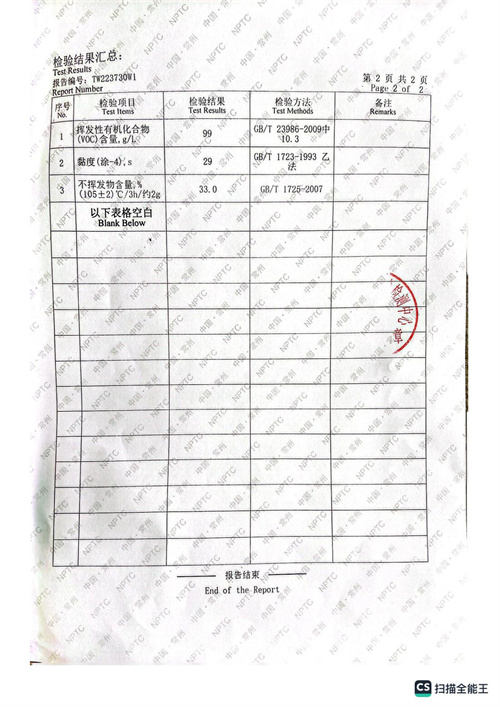 检验结果汇总:
Test Results
报告编号: TW223730W1
Report Number
第 2 页 共 2 页
Page 2 of 2
序号 检验项目 检验结果 检验方法 备注
No. Test Items Test Results Test Methods Remarks
1 挥发性有机化合物 99 GB/T 23986-2009中
(VOC)含量, g/L 10.3
2 黏度(涂-4), s 29 GB/T 1723-1993 乙
法
3 不挥发物含量,% 33.0 GB/T 1725-2007
(105±2)℃/3h/约2g
以下表格空白
Blank Below
检测中心
章
报告结束
End of the Report
中国·常州 NPTC
CS 扫描全能王